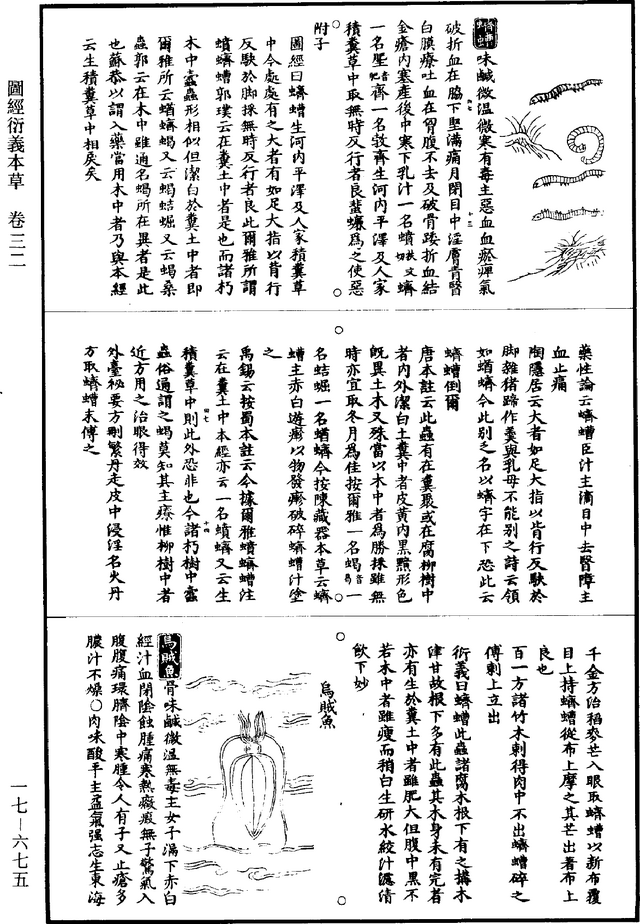 圖經衍義本草　卷三二
一七—六七五
味鹹微溫微寒有毒主惡血血瘀痹氣
破折血在脇下堅滿痛月閉目中淫膚青瞖
白膜療吐血在胷腹不去及破骨踒折血結
金瘡內塞產後中寒下乳汁一名蟦
一名䘃齊一名敦齊生河內平澤及人家
積糞草中取無時反行者良蜚蠊為之使惡
附子
圖經曰蠐螬生河內平澤及人家積糞草
中今處處有之大者有如足大指以背行
反駃於脚採無時反行者良此爾雅所謂
蟦蠐螬郭璞云在糞土中者是也而諸朽
木中蠹蟲形相似但潔白於糞土中者即
爾雅所云蝤蠐蝎又云蝎蛣𧌑又云蝎桑
蟲郭云在木中雖通名蝎所在異者是此
也蘇恭以謂入藥當用木中者乃與本經
云生積糞草中相戾矣
藥性論云蠐螬臣汁主滴目中去瞖障主
血止痛
陶隱居云大者如足大指以背行反駃於
脚雜猪蹄作羹與乳母不能別之詩云領
如蝤蠐今此別之名以蠐字在下恐此云
蠐螬倒爾
唐本註云此蟲有在糞聚或在腐柳樹中
者內外潔白土糞中者皮黃內黑黯形色
既異土木又殊當以木中者為勝採雖無
時亦宜取冬月為佳按爾雅一名蝎
名蛣𧌑一名蝤蠐今按陳藏器本草云蠐
螬主赤白遊瘮以物發瘮破碎蠐螬汁塗
之
禹錫云按蜀本註云今據爾雅蟦蠐螬注
云在糞土中本經亦云一名蟦蠐又云生
積糞草中則此外恐非也今諸朽樹中蠹
蟲俗通謂之蝎莫知其主療惟柳樹中者
近方用之治眼得效
外臺祕要方刪繁丹走皮中浸淫名火丹
方取蠐螬末傅之
千金方治稻麥芒入眼取蠐螬以新布覆
目上持蠐螬從布上摩之其芒出著布上
良也
百一方諸竹木刺得肉中不出蠐螬碎之
傅刺上立出
衍義曰蠐螬此蟲諸腐木根下有之構木
津甘故根下多有此蟲其木身未有完者
亦有生於糞土中者雖肥大但腹中黑不
若木中者雖瘦而稍白生研水絞汁濾清
飲下妙
烏賊魚
烏賊魚
骨味鹹微溫無毒主女子漏下赤白
經汁血閉陰蝕腫痛寒熱癥瘕無子驚氣入
腹腹痛環臍陰中寒腫令人有子又止瘡多
膿汁不燥○肉味酸平主益氣强志生東海